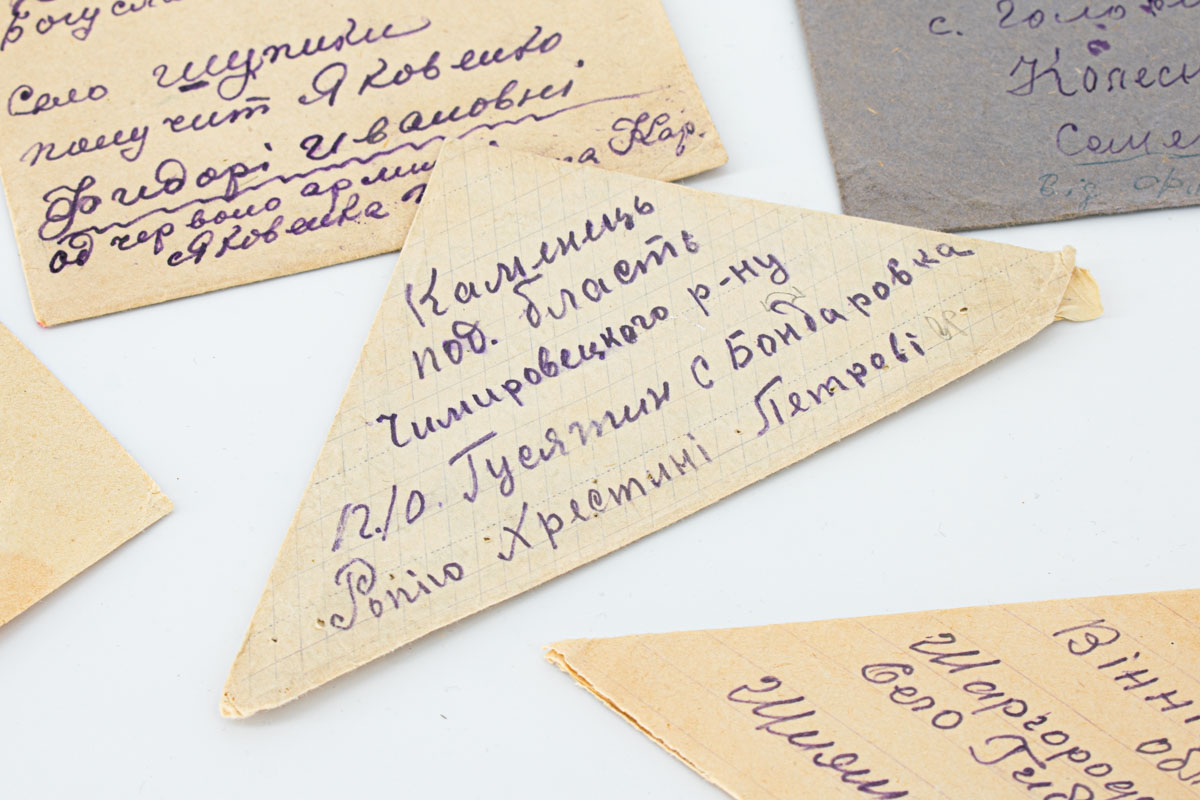 Богусла
Село Шупики
получит Яковенко
Фидорі Ивановні
од червоно арми на Кар.
Яковенка
с. Голо
Колесн
Семе
від
Каминець
под. бласть
Чимировецкого р-ну
п/о. Гусятин с Бондаровка
Ропіго Хрестині Петрові
Вінн
обл
Шаргород
Село